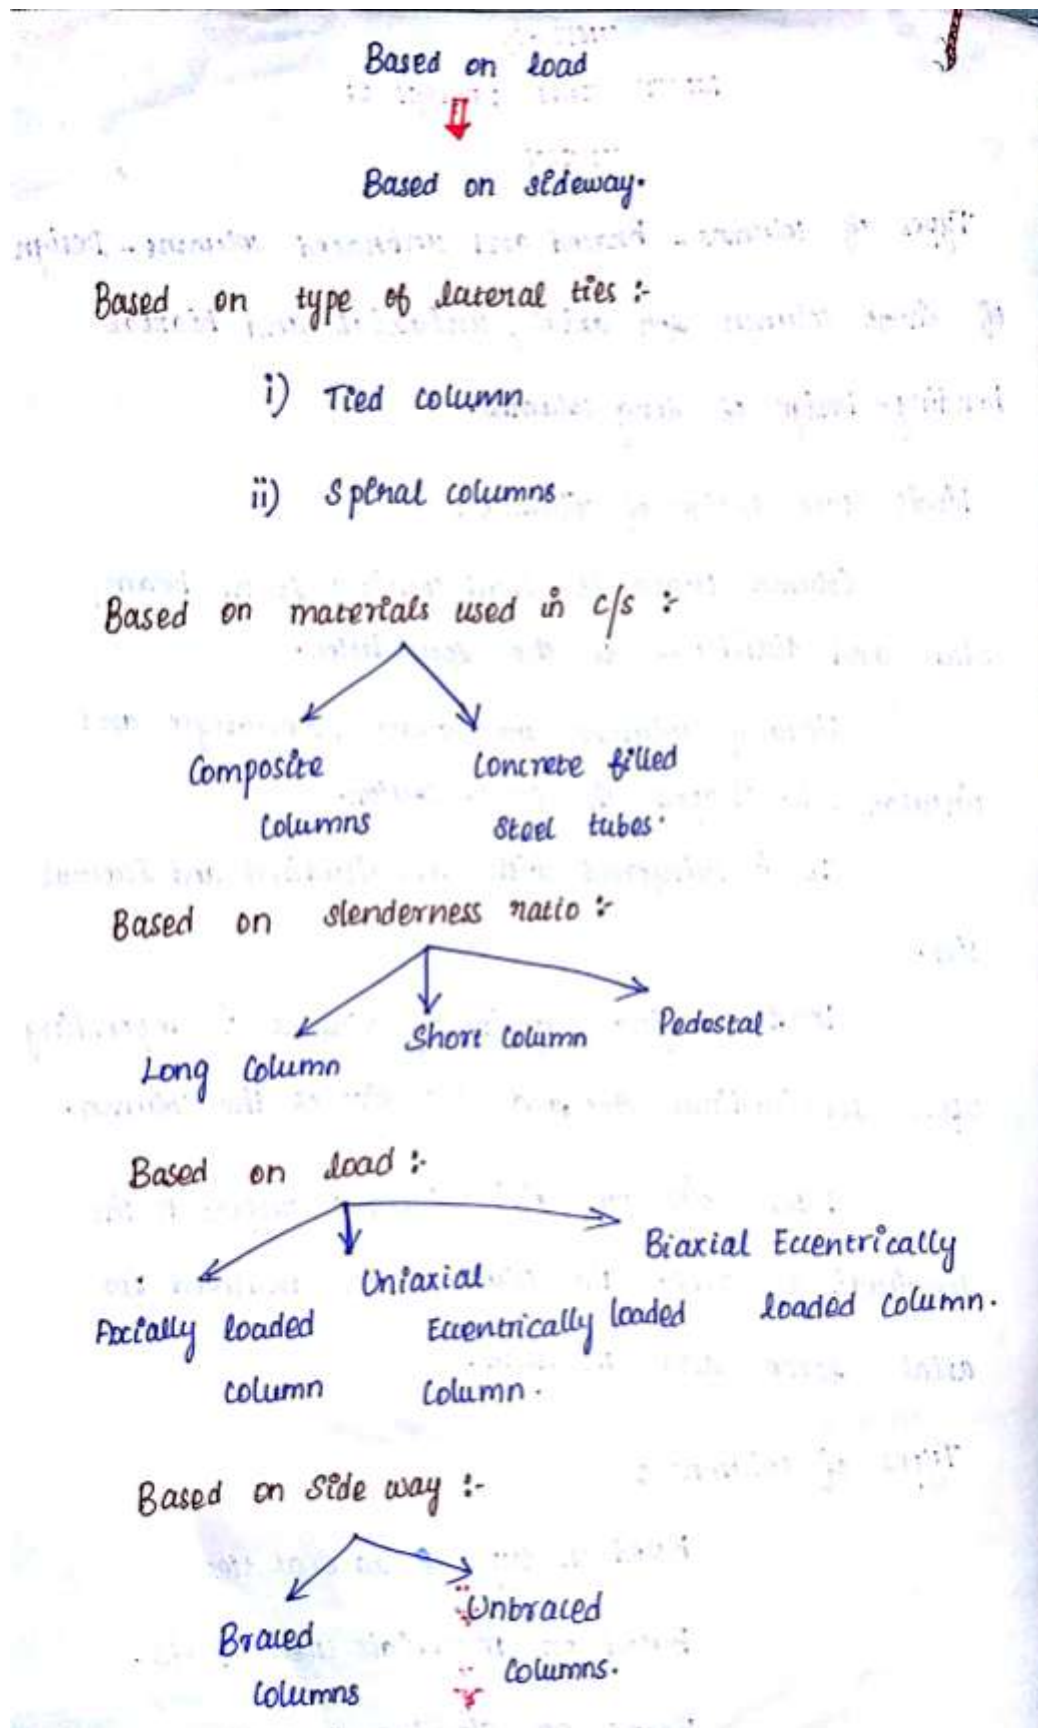 Based on load
Based on sideway.
Based on type of lateral ties :-
i) Tied column.
ii) Spiral columns.
Based on materials used in c/s :-
Composite Columns
Concrete filled Steel tubes.
Based on slenderness ratio :-
Long Column
Short Column
Pedestal.
Based on load :-
Axially loaded column
Uniaxial Eccentrically loaded Column.
Biaxial Eccentrically loaded column.
Based on Side way :-
Braced Columns
Unbraced Columns.